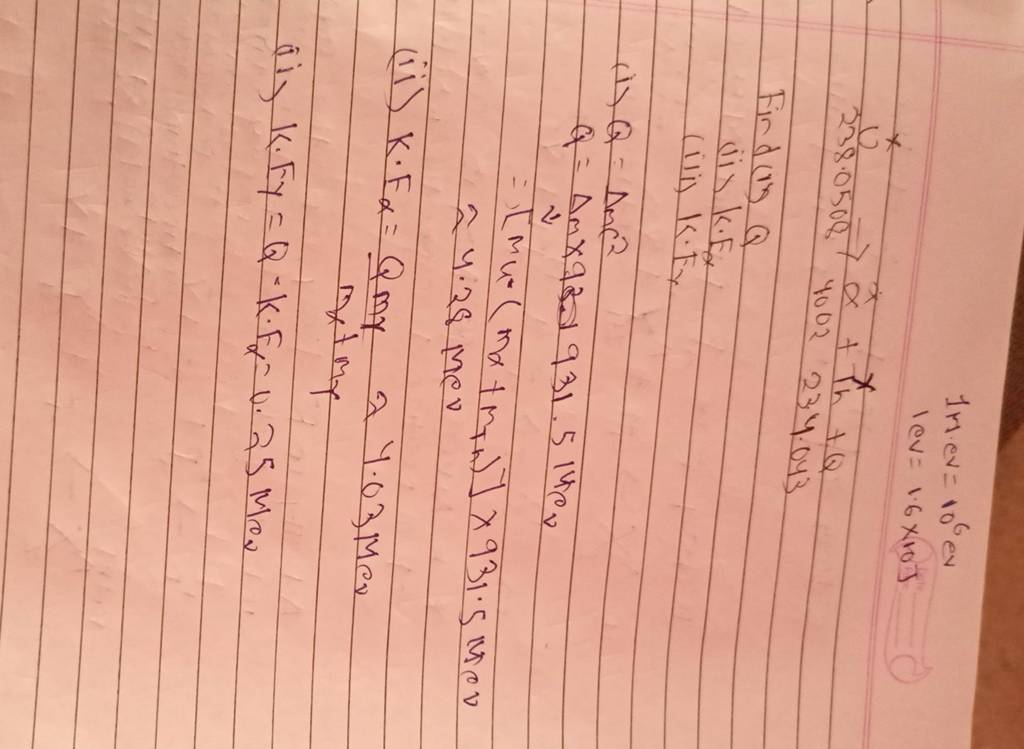 1 M.ev = 10⁶ ev
1ev = 1.6 × 10 J
x
U → α + Th + Q
238.0508 4.002 234.043
Find (i) Q
(ii) K.Eα
(iii) K.Ey
(i) Q = Δmc²
Q = Δm × 931.5 Mev
= [mu - (mα + mTh)] × 931.5 Mev
≈ 4.28 Mev
(ii) K.Eα = Q my / mα + my ≈ 4.03 Mev
(ii) K.Ey = Q - K.Eα = 0.25 Mev